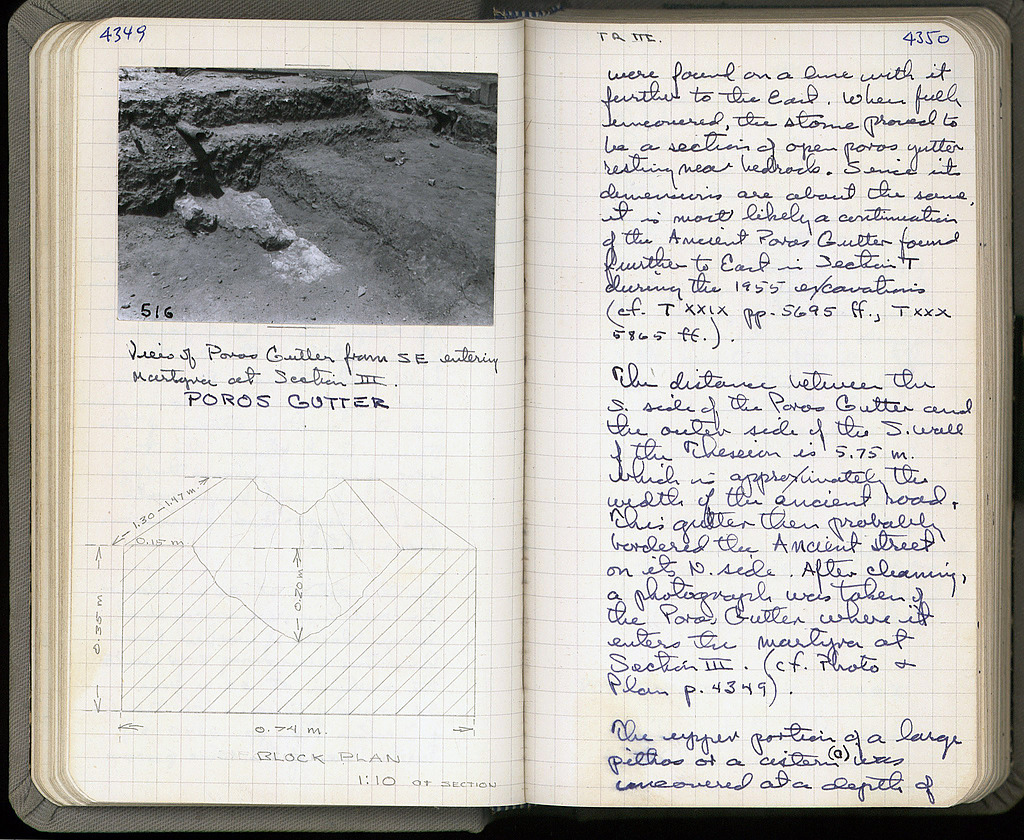 4349
516
View of Poros Gutter from SE entering
Martyra at Section III.
POROS GUTTER
1.30-1.47 m.
0.15 m
0.20 m
0.35 m
0.74 m.
BLOCK PLAN
1:10 OF SECTION
TR III.
4350
were found on a line with it
further to the East. When fully
uncovered, the stone proved to
be a section of open poros gutter
resting near bedrock. Since its
dimensions are about the same,
it is most likely a continuation
of the Ancient Poros Gutter found
further to East in Section T
during the 1955 excavations
(cf. T XXIX pp. 5695 ff., T XXX
5865 ff.).
The distance between the
S. side of the Poros Gutter and
the outer side of the S. wall
of the Theseion is 5.75 m.
which is approximately the
width of the ancient road.
This gutter then probably
bordered the Ancient street
on its N. side. After cleaning,
a photograph was taken of
the Poros Gutter where it
enters the martyra at
Section III. (cf. Photo &
Plan p. 4349).
The upper portion of a large
pithos or a cistern (a) was
uncovered at a depth of